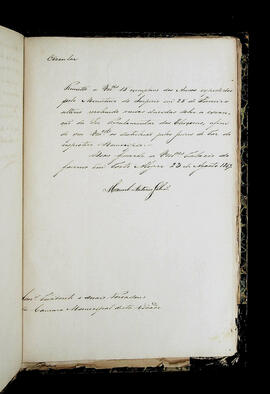 Circular
Remetto a Vmces 12 exemplares dos Avisos expedidos
pelo Ministerio do Imperio em 28 de Fevereiro
ultimo resolvendo varias duvidas sobre a execu-
ção da Lei Regulamentar das Eleições, afim
de que Vmces os distribuão pelos Juizes de Paz do
respectivo Municipio.
Deos Guarde a Vmces Palacio do
Governo em Porto Alegre 23 de Agosto 1847
Manoel Antonio Galvão
Presidente e mais Vereadores
da Camara Municipal desta Cidade